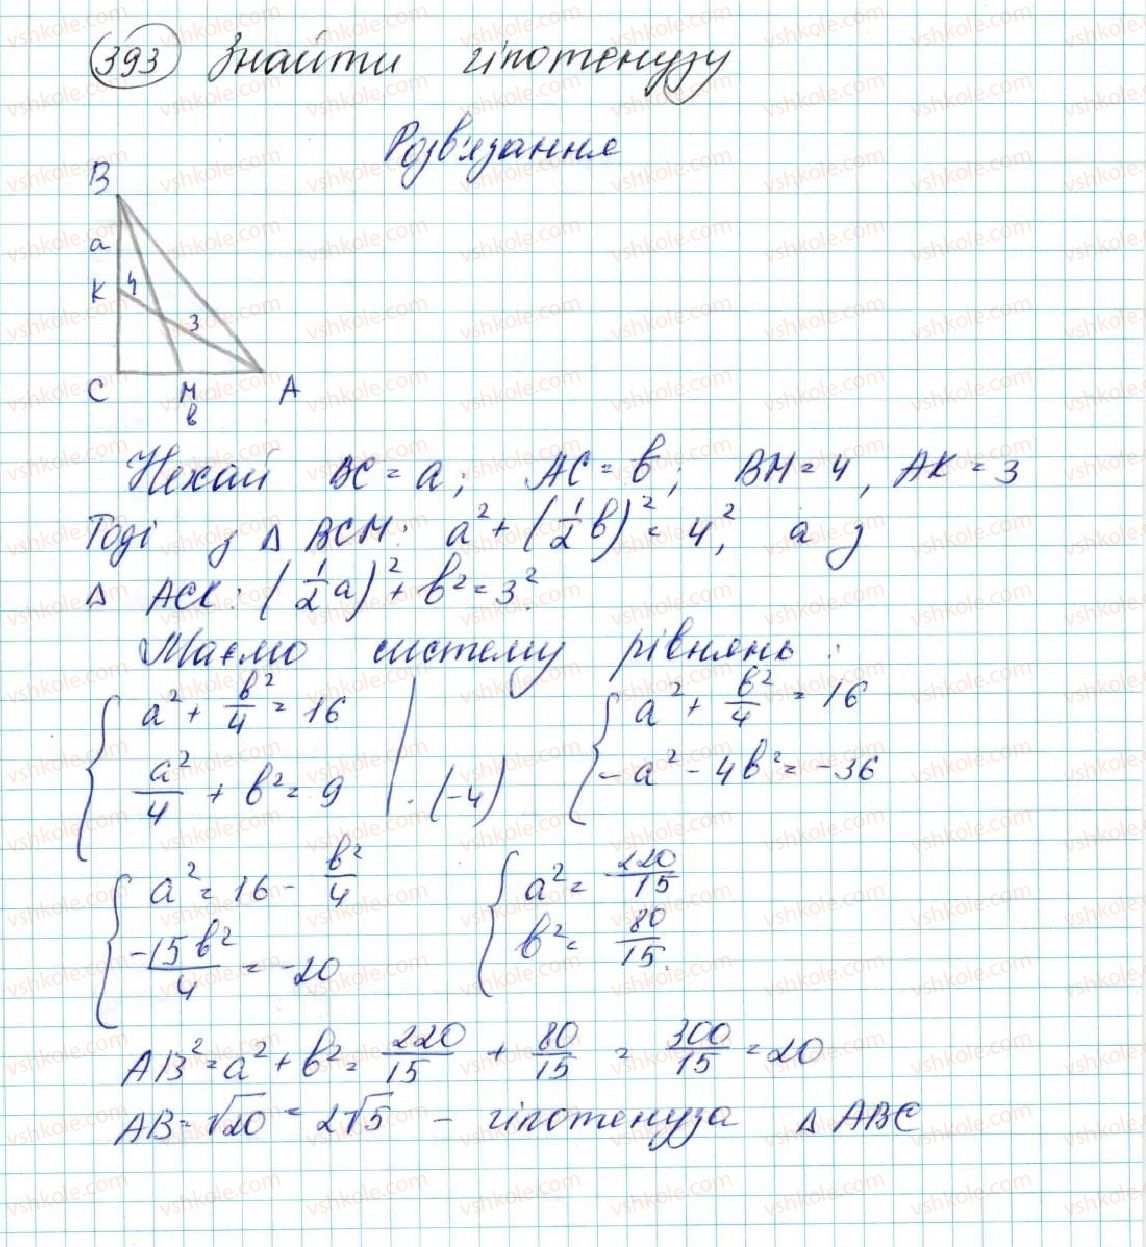 393 Знайти гіпотенузу
Розв'язання
B
a
K 4
3
C M A
в
Нехай BC = a; AC = b; BM = 4, AK = 3
Тоді з Δ BCM: a² + (1/2 b)² = 4², а з
Δ ACK: (1/2 a)² + b² = 3².
Маємо систему рівнянь:
{ a² + b²/4 = 16 { a² + b²/4 = 16
a²/4 + b² = 9 | · (-4) -a² - 4b² = -36
{ a² = 16 - b²/4 { a² = 220/15
-15b²/4 = -20 b² = 80/15.
AB² = a² + b² = 220/15 + 80/15 = 300/15 = 20
AB = √20 = 2√5 - гіпотенуза Δ ABC
vshkole.com